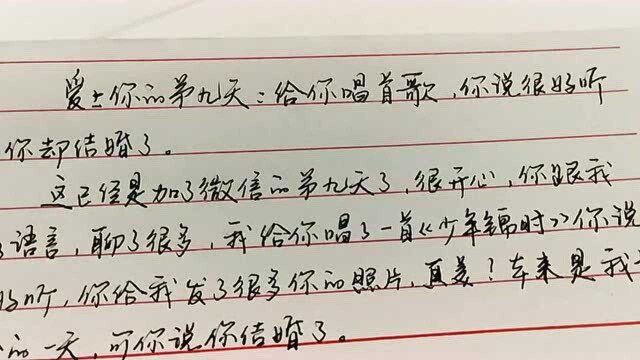 爱上你的第九天:给你唱首歌,你说很好听
你却结婚了。
这已经是加了微信的第九天了,很开心,你跟我
语言,聊了很多,我给你唱了一首《少年锦时》你说
好听,你给我发了很多你的照片,真美!本来是我
的一天,可你说你结婚了。